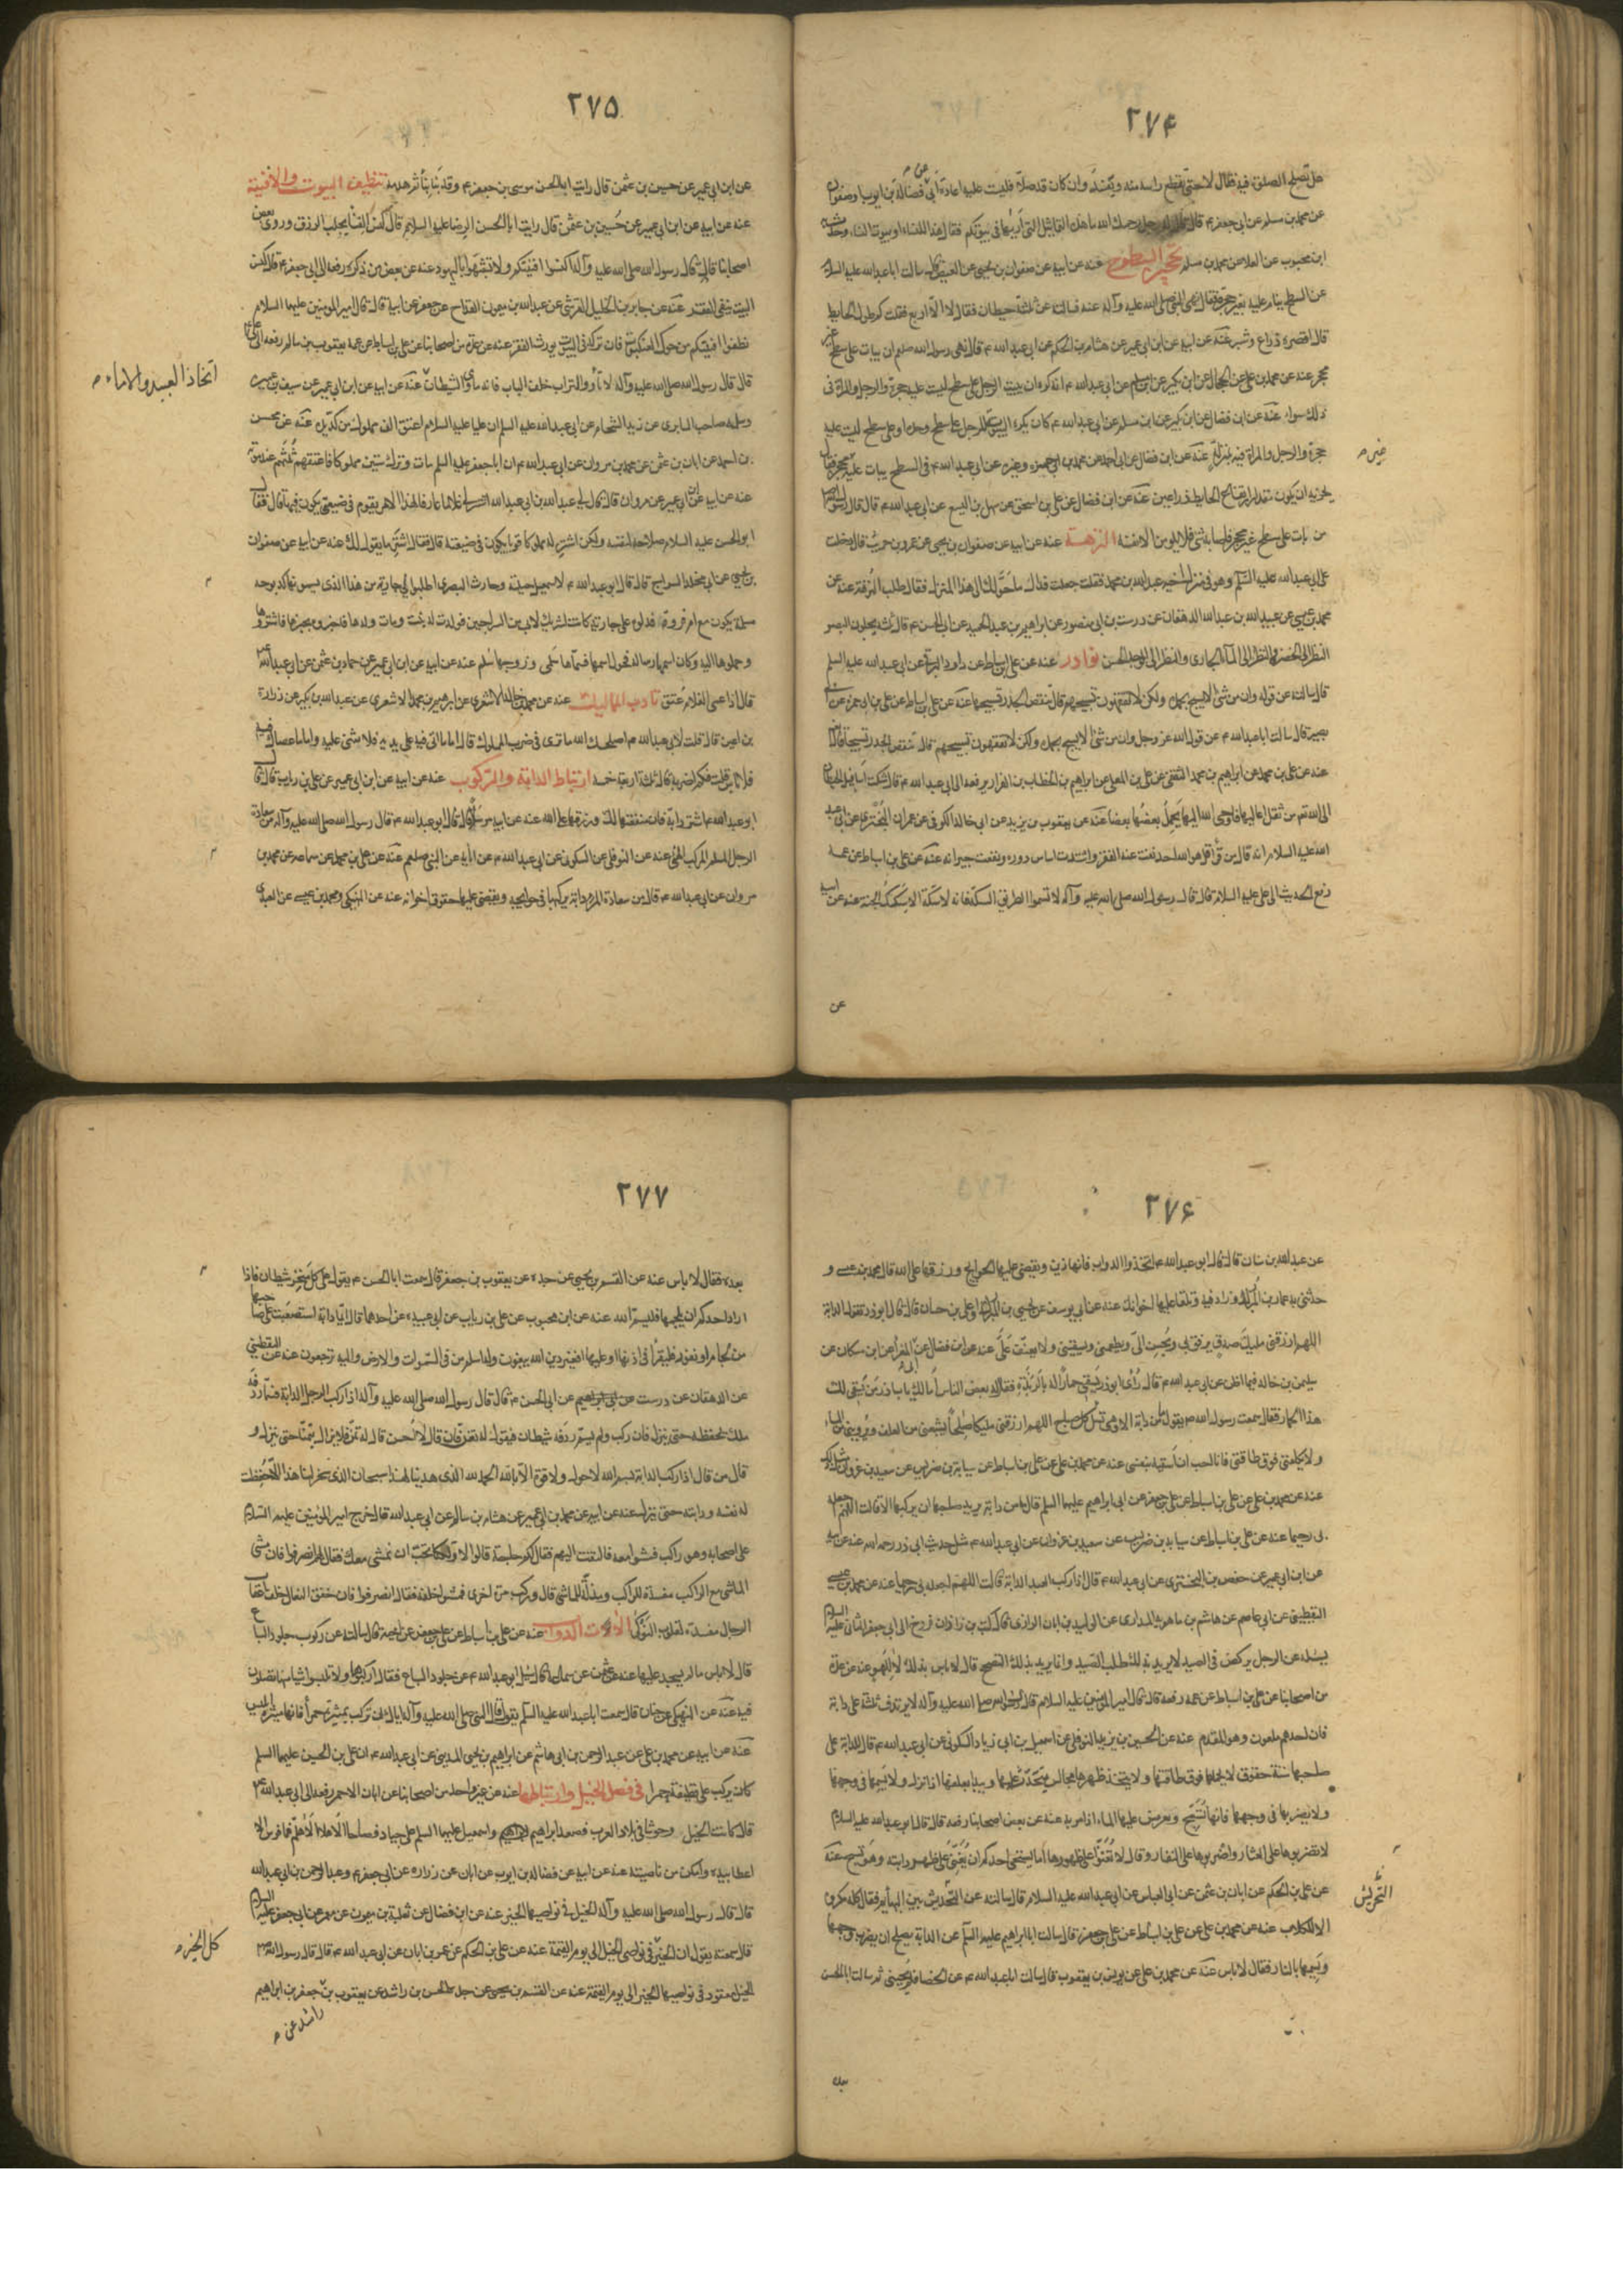 ٢٧۴
هل تصلح الصلوة فيه فقال لا حتى يقطع راسه منه ويفسد وان كان قد صلى فليست عليه اعادة
عن محمد بن مسلم عن ابى جعفر ع قال قال له رجل رحمك الله ما هذه التماثيل التى اريها فى بيوتكم فقال هذا للنساء او بيوت النساء
ابن محبوب عن العلا عن محمد بن مسلم تحجير السطوح عنه عن ابيه عن صفوان بن يحيى عن العيص قال سالت ابا عبد الله عليه السلم
عن السطح ينام عليه بغير حجرة فقال نهى النبى صلى الله عليه وآله عنه فسالته عن ثلثة حيطان فقال لا الا اربع فقلت كم طول الحايط
قال اقصره ذراع وشبر عنه عن ابيه عن ابن ابى عمير عن هشام بن الحكم عن ابى عبد الله ع قال نهى رسول الله صلعم ان يبات على سطح غير
محجر عنه عن محمد بن على عن الحجال عن ابن بكير عن ابن مسلم عن ابى عبد الله ع انه كره ان يبيت الرجل على سطح ليست عليه حجرة والرجل والمراة فى
ذلك سواء عنه عن ابن فضال عن ابن بكير عن ابن مسلم عن ابى عبد الله ع كان يكره البيتوتة للرجل على سطح وحده او على سطح ليست عليه
حجرة والرجل والمراة فيه بمنزلة عنه عن ابن فضال عن ابى احمد عن محمد بن ابى حمزه وغيره عن ابى عبد الله ع فى السطح يبات عليه غير محجر فقال
يجزيه ان يكون مقدار ارتفاع الحايط ذراعين عنه عن ابن فضال عن على بن اسحق عن سهل بن اليسع عن ابى عبد الله ع قال قال رسول الله ص
من بات على سطح غير محجر فاصابه شئ فلا يلومن الا نفسه النزهة عنه عن ابيه عن صفوان بن يحيى عن عمرو بن حريث قال دخلت
على ابى عبد الله عليه السلم وهو فى منزل اخيه عبد الله بن محمد فقلت جعلت فداك ما حولك الى هذا المنزل فقال طلب النزهة عنه عن
محمد بن عيسى عن عبيد الله بن عبد الله الدهقان عن درست بن ابى منصور عن ابراهيم بن عبد الحميد عن ابى الحسن ع قال ثلثة يجلون البصر
النظر الى الخضرة والنظر الى الماء الجارى والنظر الى الوجه الحسن نوادر عنه عن على بن اسباط عن داود الرقى عن ابى عبد الله عليه السلم
قال سالته عن قوله وان من شئ الا يسبح بحمده ولكن لا تفقهون تسبيحهم قال تنقض الجدر تسبيحها عنه عن على بن اسباط عن على بن ابى حمزه عن ابى
بصير قال سالت ابا عبد الله ع عن قول الله عز وجل وان من شئ الا يسبح بحمده ولكن لا تفقهون تسبيحهم قال تنقض الجدر تسبيحها
عنه عن على بن محمد عن ابراهيم بن محمد الثقفى عن على بن المعلى عن ابراهيم بن الخطاب بن الفرا رفعه الى ابى عبد الله ع قال شكت
الى الله تعم من ثقل اعاليها فاوحى الله اليها يحمل بعضها بعضا عنه عن يعقوب بن يزيد عن ابى خالد الكوفى عن عمران البخترى عن ابى عبد
الله عليه السلم انه قال من قرا قل هو الله احد نفت عنه الفقر واشتدت اساس دوره ونفعت جيرانه عنه عن على بن اسباط عن عمه
رفع الحديث الى على عليه السلام قال قال رسول الله صلى الله عليه وآله لا تسموا الطريق السكة فانه لا سكة الا سكك الجنة عنه عن ابيه
عن
غير م
٢٧۵
عن ابن ابى عمير عن حسين بن عثمن قال رايت ابا الحسن موسى بن جعفر ع وقد بنا بناء ثم هدمه تنظيف البيوت والافنية
عنه عن ابيه عن ابن ابى عمير عن حسين بن عثمن قال رايت ابا الحسن الرضا عليه السلام قال كنس الفناء يجلب الرزق وروى بعض
اصحابنا قال قال رسول الله صلى الله عليه وآله اكنسوا افنيتكم ولا تشبهوا باليهود عنه عن بعض من ذكره رفعه الى ابى جعفر ع قال كنس
البيت ينفى الفقر عنه عن جابر بن الخليل القرشى عن عبد الله بن ميمون القداح عن جعفر عن ابيه قال قال امير المومنين عليهما السلام
نظفوا افنيتكم من حوك العنكبوت فان تركه فى البيت يورث الفقر عنه عن عدة من اصحابنا عن على بن اسباط عن عمه يعقوب بن سالم رفعه الى على ع
قال قال رسول الله صلى الله عليه وآله لا تاووا التراب خلف الباب فانه ماوى الشيطان عنه عن ابيه عن ابن ابى عمير عن سيف بن عميره
وسلمه صاحب السابرى عن زيد الشحام عن ابى عبد الله عليه السلم ان عليا عليه السلام اعتق الف مملوك من كد يده عنه عن محسن
بن احمد عن ابان بن عثمن عن محمد بن مروان عن ابى عبد الله ع ان ابا جعفر عليه السلم مات وترك ستين مملوكا فاعتق ثلثهم عند موته
ابو الحسن عليه السلام صلاحه لنفسه ولكن اشتر له مملوكا قويا يكون فى ضيعته قال فقال اشتر ما يقول لك عنه عن ابيه عن صفوان
بن يحيى عن ابى مخلد السراج قال قال ابو عبد الله ع لاسمعيل حقيبة وحارث البصرى اطلبوا لى جارية من هذا الذى يسمونها كدبوجه
مسلمة يكون مع ام فروة فدلوه على جارية كانت لشريك لابى من السراجين فولدت له بنت ومات ولدها فاخبروه بخبرها فاشتروها
وحملوها اليه وكان اسمها رساله فحول اسمها فسماها سلمى وزوجها سلم عنه عن ابيه عن ابن ابى عمير عن حماد بن عثمن عن ابى عبد الله ع
قال اذا عمى الغلام عتق تاديب المماليك عنه عن محمد بن خالد الاشعرى عن ابرهيم بن محمد الاشعرى عن عبد الله بن بكير عن زرارة
بن اعين قال قلت لابى عبد الله ع اصلحك الله ما ترى فى ضرب المملوك قال ما اتى فيه على يديه فلا شئ عليه واما ما عصاك فيه
فلا باس قلت فكم اضربه قال ثلثة اربعة خمسة ارتباط الدابة والمركوب عنه عن ابيه عن ابن ابى عمير عن على بن رياب قال قال
ابو عبد الله ع اشتر دابة فان منفعتها لك ورزقها على الله عنه عن ابيه مرسلا قال قال ابو عبد الله ع قال رسول الله صلى الله عليه وآله من سعادة
الرجل المسلم المركب الهنئ عنه عن النوفلى عن السكونى عن ابى عبد الله ع عن ابائه عن النبى صلعم عنه عن على بن محمد عن سماعه عن محمد بن
مروان عن ابى عبد الله ع قال من سعادة المرء دابة يركبها فى حوايجه ويقضى عليها حقوق اخوانه عنه عن النهيكى ومحمد بن عيسى عن العبدى
اتخاذ العبيد والاماء م
٢٧۶
عن عبد الله بن سنان قال قال ابو عبد الله ع اتخذوا الدواب فانها زين وتقضى عليها الحوايج ورزقها على الله قال محمد بن عيسى و
حدثنى به عمار بن المبارك وزاد فيه وتلقا عليها اخوانك عنه عن ابى يوسف عن يحيى بن المبارك وعلى بن حسان قال قال ابو ذر تقول الدابة
اللهم ارزقنى مليك صدق يرفق بى ويحسن الى ويطعمنى ويسقينى ولا يعنف على عنه عن ابن فضال عن المفرا عن ابن مسكان عن
سليمن بن خالد فيما اظن عن ابى عبد الله ع قال راى ابو ذر يسقى حمارا له بالربذة فقال له بعض الناس اما لك يا با ذر من يسقى لك
هذا الحمار فقال سمعت رسول الله ص يقول ما من دابة الا وهى تسئل كل صباح اللهم ارزقنى مليكا صالحا يشبعنى من العلف ويروينى من الماء
ولا يكلفنى فوق طاقتى فانا احب ان اسقيه بنفسى عنه عن محمد بن على عن على بن اسباط عن سيابة بن ضريس عن سعيد بن غزوان
عنه عن محمد بن على عن على بن اسباط عن على بن جعفر عن ابى ابراهيم عليهما السلم قال ما من دابة يريد صاحبها ان يركبها الا قالت اللهم اجعله
بى رحيما عنه عن على بن اسباط عن سيابه بن ضريس عن سعيد بن غزوان عن ابى عبد الله ع مثل حديث ابى ذر رحمه الله عنه عن ابيه
عن ابن ابى عمير عن حفص بن البخترى عن ابى عبد الله ع قال اذا ركب العبد الدابة قالت اللهم اجعله بى رحيما عنه عن محمد بن عيسى
يسئله عن الرجل يركض فى الصيد لا يريد بذلك طلب الصيد وانما يريد بذلك التصحح قال لا باس بذلك الا للهو عنه عن عدة
من اصحابنا عن على بن اسباط عن عمه رفعه قال قال امير المؤمنين عليه السلام قال رسول الله صلى الله عليه وآله لا يرتدف ثلثة على دابة
فان احدهم ملعون وهو المقدم عنه عن الحسين بن يزيد النوفلى عن اسمعيل بن ابى زياد السكونى عن ابى عبد الله ع قال للدابة على
صاحبها ستة حقوق لا يحملها فوق طاقتها ولا يتخذ ظهرها مجالس يتحدث عليها ويبدا بعلفها اذا نزل ولا يسمها فى وجهها
ولا يضربها فى وجهها فانها تسبح ويعرض عليها الماء اذا مر به عنه عن بعض اصحابنا رفعه قال قال ابو عبد الله عليه السلام
لا تضربوها على العثار واضربوها على النفار وقال لا تغنوا على ظهورها اما يستحيى احدكم ان يغنى على ظهر دابته وهو تسبح عنه
عن على بن الحكم عن ابان بن عثمن عن ابى العباس عن ابى عبد الله عليه السلام قال سالته عن التحريش بين البهايم فقال كله مكروه
الا الكلاب عنه عن محمد بن على عن على بن اسباط عن على بن جعفر قال سالت ابا ابراهيم عليه السلم عن الدابة يصلح ان يضرب وجهها
ويسمها بالنار فقال لا باس عنه عن محمد بن على عن يونس بن يعقوب قال سالت ابا عبد الله ع عن الخصا فلم يجبنى ثم سالت ابا الحسن
التحريش
٢٧٧
بعده فقال لا باس عنه عن القسم بن يحيى عن جده عن يعقوب بن جعفر قال سمعت ابا الحسن ع يقول على كل منخر شيطان فاذا
اراد احدكم ان يلجمها فليسم الله عنه عن ابن محبوب عن على بن رياب عن ابى عبيده عن احدهما قال ايما دابة استصعبت على صاحبها
من لجام او نفور فليقرا فى اذنها او عليها افغير دين الله يبغون وله اسلم من فى السموات والارض واليه ترجعون عنه عن اليقطينى
عن الدهقان عن درست عن ابى ابراهيم عن ابى الحسن ع قال قال رسول الله صلى الله عليه وآله اذا ركب الرجل الدابة فسمى ردفه
ملك يحفظه حتى ينزل فان ركب ولم يسم ردفه شيطان فيقول له تغن فان قال لا احسن قال له تمن فلا يزال يتمنى حتى ينزل و
قال من قال اذا ركب الدابة بسم الله لا حول ولا قوة الا بالله الحمد لله الذى هدينا لهذا سبحان الذى سخر لنا هذا الا حفظت
له نفسه ودابته حتى ينزل عنه عن ابيه عن محمد بن ابى عمير عن هشام بن سالم عن ابى عبد الله قال خرج امير المؤمنين عليه السلام
على اصحابه وهو راكب فمشوا معه فالتفت اليهم فقال لكم حاجة قالوا لا ولكنا نحب ان نمشى معك فقال لهم انصرفوا فان مشى
الماشى مع الراكب مفسدة للراكب ومذلة للماشى قال وركب مرة اخرى فمشوا خلفه فقال انصرفوا فان خفق النعال خلف اعقاب
الرجال مفسدة لقلوب النوكى آلات الدواب عنه عن على بن اسباط عن على بن جعفر عن اخيه قال سالته عن ركوب جلود السباع
قال لا باس ما لم يسجد عليها عنه عن عثمن عن سماعه قال سئل ابو عبد الله ع عن جلود السباع فقال اركبوها ولا تلبسوا شيئا منها تصلون
فيه عنه عن النهيكى عن حنان قال سمعت ابا عبد الله عليه السلم يقول قال النبى صلى الله عليه وآله اياك ان تركب بميثرة حمرا فانها ميثرة ابليس
عنه عن ابيه عن محمد بن على عن عبد الرحمن بن ابى هاشم عن ابراهيم بن يحيى المدينى عن ابى عبد الله ع ان على بن الحسين عليهما السلم
كان يركب على قطيفة حمرا فى فضل الخيل وارتباطها عنه عن غير واحد من اصحابنا عن ابان الاحمر رفعه الى ابى عبد الله ع
قال كانت الخيل وحوشا فى بلاد العرب فصعد ابراهيم واسمعيل عليهما السلم على جياد فصاحا الا هلا الا هلم فما فرس الا
اعطا بيده وامكن من ناصيته عنه عن ابيه عن فضاله بن ايوب عن ابان عن زراره عن ابى جعفر ع وعبد الرحمن بن ابى عبد الله
قال قال رسول الله صلى الله عليه وآله الخيل فى نواصيها الخير عنه عن ابن فضال عن ثعلبة بن ميمون عن معمر عن ابى جعفر عليه السلم
قال سمعته يقول ان الخير فى نواصى الخيل الى يوم القيمة عنه عن على بن الحكم عن عمر بن ابان عن ابى عبد الله ع قال قال رسول الله ص
الخيل معقود فى نواصيها الخير الى يوم القيمة عنه عن القسم بن يحيى عن جده الحسن بن راشد عن يعقوب بن جعفر بن ابراهيم
راشد عن م
كل الخير م